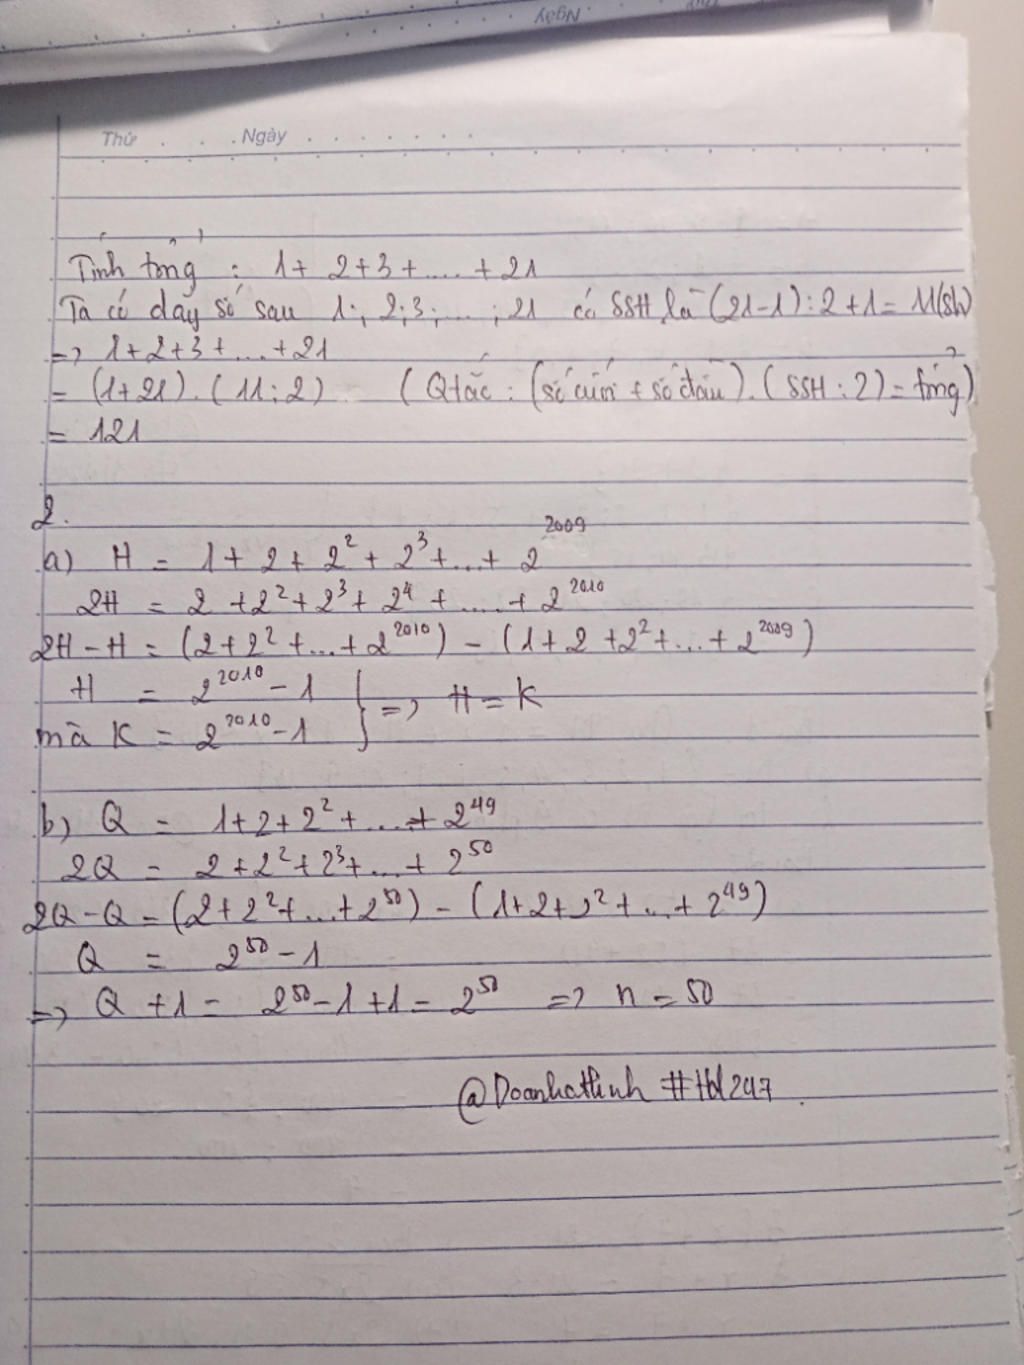 Ngày
Thứ . . . Ngày . . . . . . .
Tính tổng : 1 + 2 + 3 + .... + 21
Ta có dãy số sau 1; 2; 3; ... ; 21 có SSH là (21-1) : 2 + 1 = 11 (sh)
=> 1 + 2 + 3 + ... + 21
= (1+21) . (11 : 2) (Qtắc : (số cuối + số đầu) . (SSH : 2) = tổng)
= 121
2.
a) H = 1 + 2 + 2² + 2³ + ... + 2²⁰⁰⁹
2H = 2 + 2² + 2³ + 2⁴ + .... + 2²⁰¹⁰
2H - H = (2 + 2² + ... + 2²⁰¹⁰) - (1 + 2 + 2² + ... + 2²⁰⁰⁹)
H = 2²⁰¹⁰ - 1 } => H = K
mà K = 2²⁰¹⁰ - 1
b) Q = 1 + 2 + 2² + ... + 2⁴⁹
2Q = 2 + 2² + 2³ + ... + 2⁵⁰
2Q - Q = (2 + 2² + ... + 2⁵⁰) - (1 + 2 + 2² + ... + 2⁴⁹)
Q = 2⁵⁰ - 1
=> Q + 1 = 2⁵⁰ - 1 + 1 = 2⁵⁰ => n = 50
@Doanhathinh #Hd247